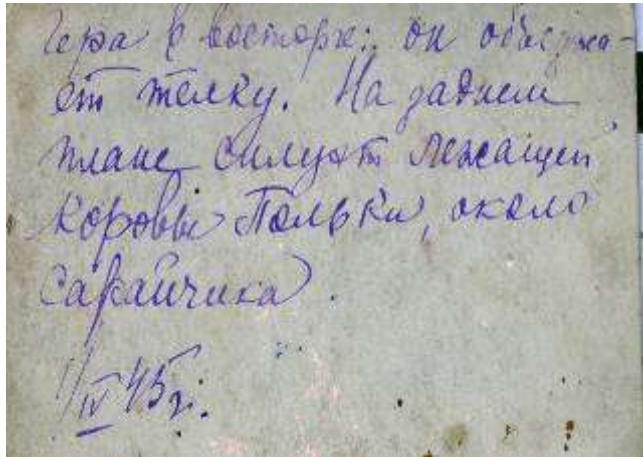 Гера в восторге: он объезжа-
ет телку. На заднем
плане силуэт лежащей
коровы Польки, около
сарайчика.
1/IV 45 г.